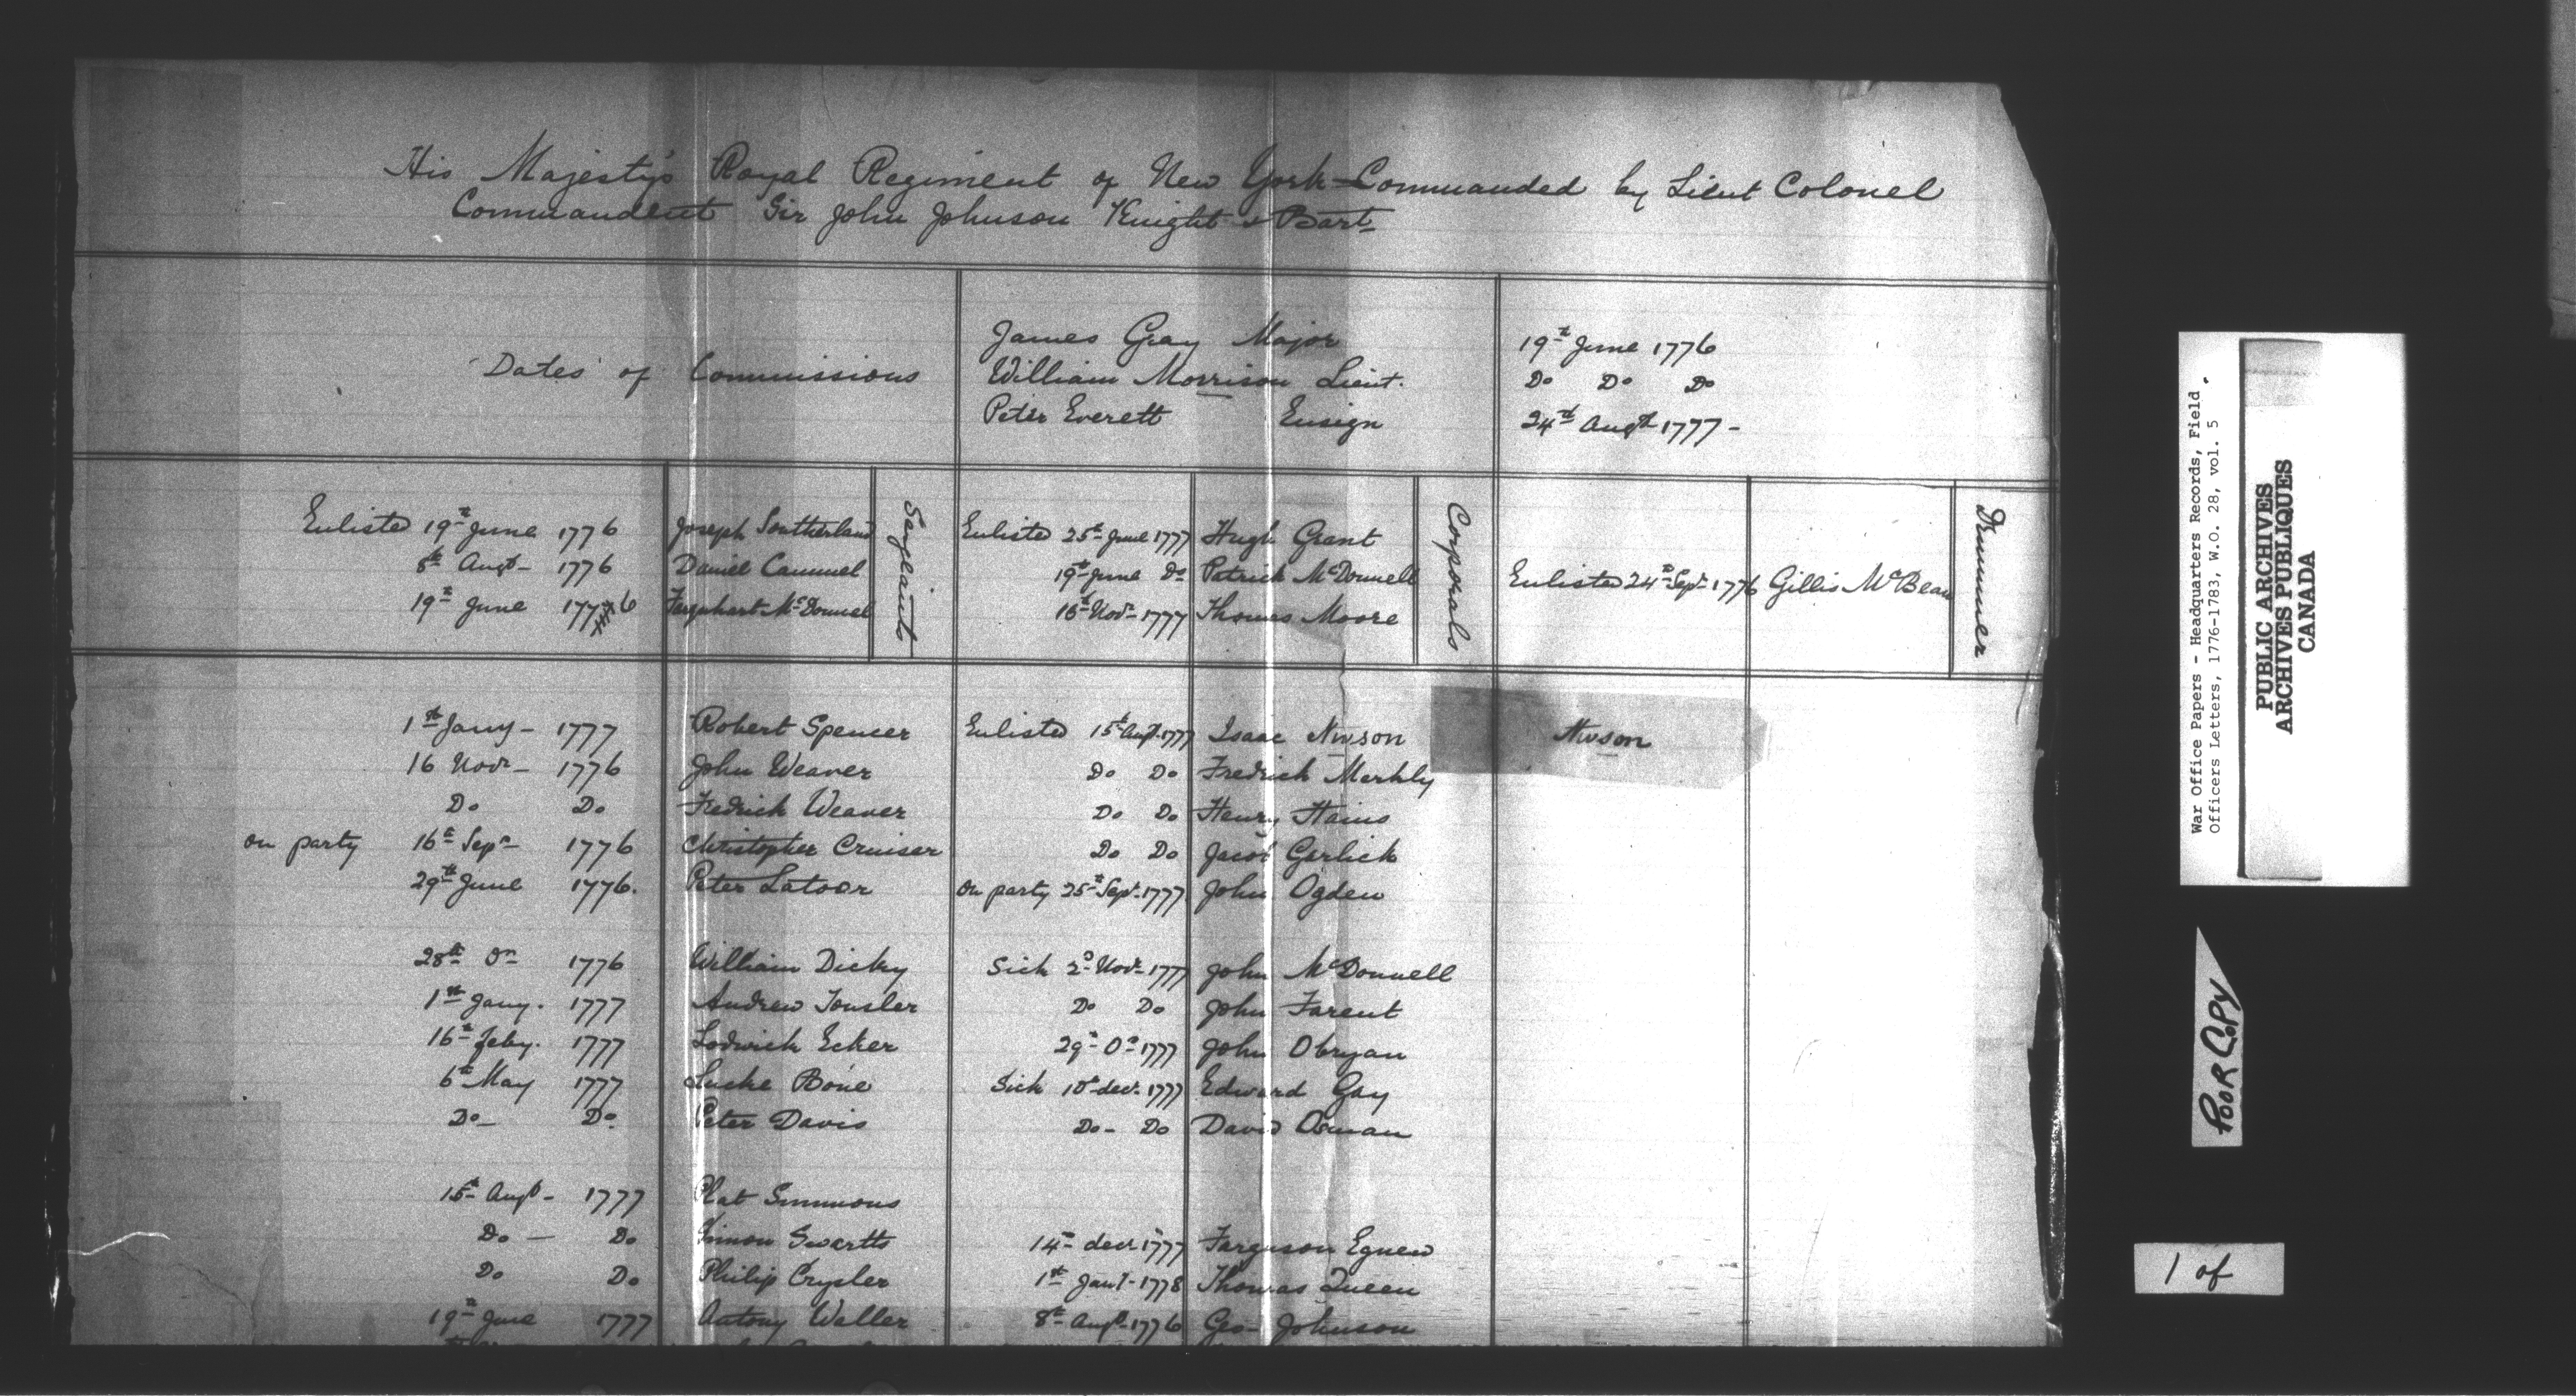 His Majesty's Royal Regiment of New York - Commanded by Lieut Colonel
Commandent Sir John Johnson Knight & Bart
Dates of Commissions
James Gray Major 19th June 1776
William Morrison Lieut. Do Do Do
Peter Everett Ensign 24th Augt 1777 -
Enlisted 19th June 1776 Joseph Southerland
8th Augt - 1776 Daniel Cammel
19th June 1776 Farquhart McDonnel
Sarjeaints
Enlisted 25th June 1777 Hugh Grant
19th June Do Patrick McDonnell
16th Novr - 1777 Thomas Moore
Corporals
Enlisted 24th Sepr - 1776 Gillis McBean
Drummer
1st Jany - 1777 Robert Spencer Enlisted 15th Augt. 1777 Isaac Nwson Nwson
16 Novr - 1776 John Weaver Do Do Fredrick Merkly
Do Do Fredrick Weaver Do Do Henry Hains
on party 16th Sepr - 1776 Christopher Cruiser Do Do Jacob Garlick
29th June 1776. Peter Latoor on party 25th Sepr. 1777 John Ogden
28th Do 1776 William Dicky Sick 2d Novr - 1777 John McDonnell
1st Jany. 1777 Andrew Tousler Do Do John Farent
16th Feby. 1777 Lodwick Ecker 29th Do 1777 John Obryan
6th May 1777 Lucke Bone Sick 10th decr. 1777 Edward Gay
Do - Do Peter Davis Do - Do David Osman
15th Augt - 1777 Plat Simmons
Do - Do Simon Swartts 14th decr 1777 Farguson Egnew
Do Do Philip Crysler 1st Janr - 1778 Thomas Queen
19th June 1777 Antony Waller 8th Augt - 1776 Geo - Johnson
War Office Papers - Headquarters Records, Field
Officers Letters, 1776-1783, W.O. 28, vol. 5
PUBLIC ARCHIVES
ARCHIVES PUBLIQUES
CANADA
POOR COPY
1 of